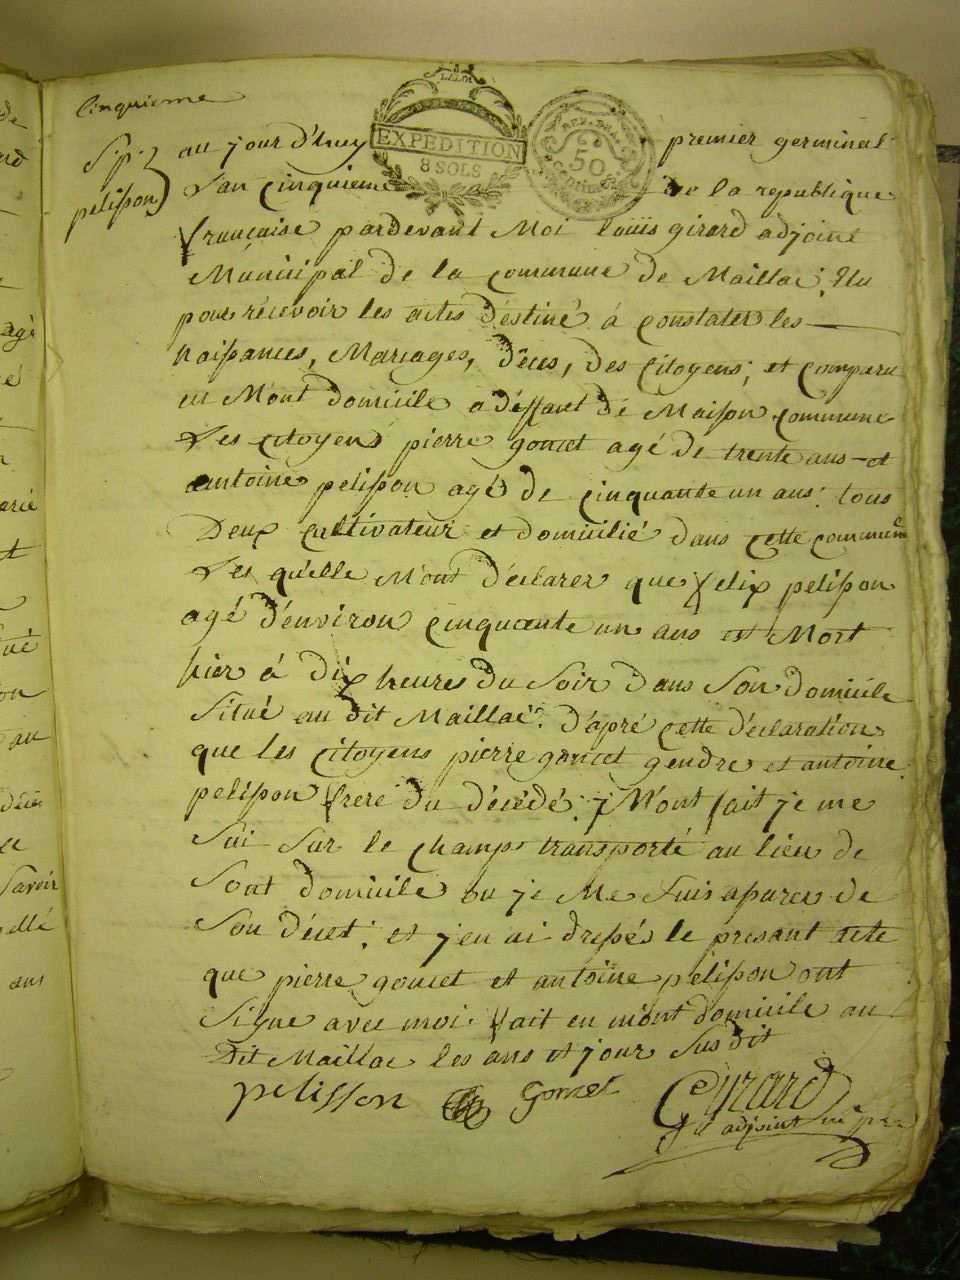 Cinquieme
S.p.
pelisson
LA LOI
EXPEDITION
8 SOLS
REP. FRA.
50
centimes
au jour d'huy premier germinal
L'an cinquieme de la republique
française pardevant Moi loüis girard adjoint
Municipal de la commune de Maillac. Elu
pour récevoir les actes déstiné á constater les
Naissances, Mariages, déces, des Citoyens; et comparu
en Mont domicile a déffaut dé Maison commune
Les citoyens pierre goucet agé de trente ans et
antoine pelisson agé de cinquante un ans. tous
Deux cultivateur et domicilié dans cette commune
Les qu'elle M'ont déclarer que felix pelisson
agé d'environ cinquante un ans est Mort
hier á dix heures du Soir dans Son domicile
Situé au dit Maillac. d'apré cette déclaration
que les Citoyens pierre goucet gendre et antoine
pelisson frere du décédé. M'ont fait je me
Sui Sur le champ transporté au lieu de
Sont domicile ou je Me Suis apurer de
Son décet. et j'en ai dressés le presant acte
que pierre goucet et antoine pélisson ont
Signe avec moi. fait en mont domicile au
Dit Maillac les ans et jour Sus dit
pelisson goucet Girard
adjoint
agé
é
arié
savoir
ellé
ans